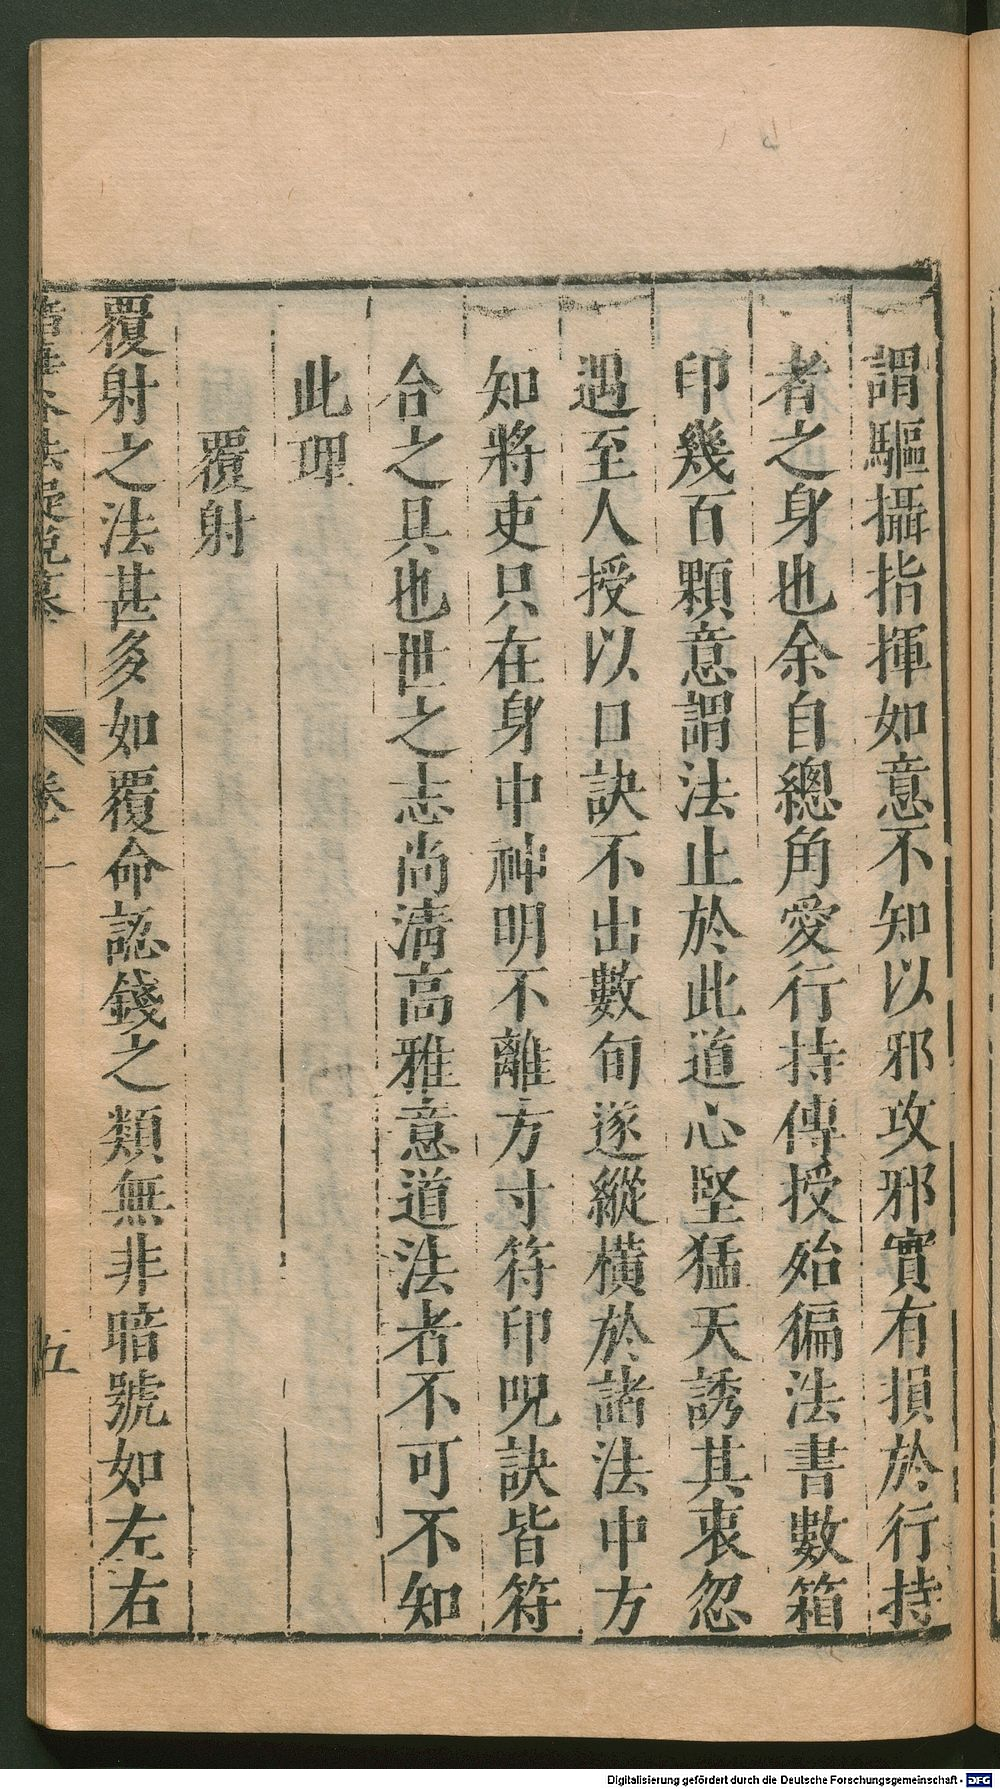 謂驅攝指揮如意不知以邪攻邪實有損於行持
者之身也余自總角愛行持傳授殆徧法書數箱
印幾百顆意謂法止於此道心堅猛天誘其衷忽
遇至人授以口訣不出數旬遂縱橫於諸法中方
知將吏只在身中神明不離方寸符印呪訣皆符
合之具也世之志尚清高雅意道法者不可不知
此理
覆射
覆射之法甚多如覆命認錢之類無非暗號如左右
卷一
五
Digitalisierung gefördert durch die Deutsche Forschungsgemeinschaft - DFG